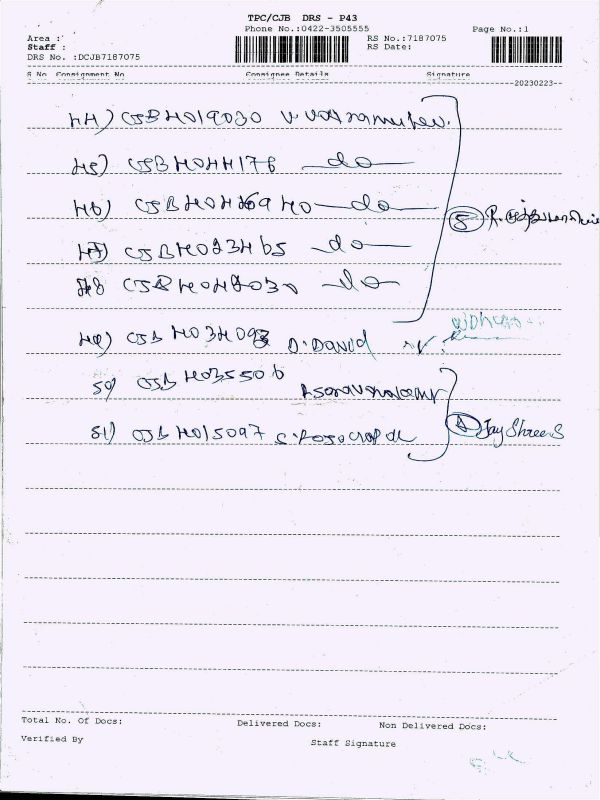 TPC/CJB DRS - P43
Phone No.:0422-3505555
Page No.:1
Area :'
RS No.:7187075
Staff :
RS Date:
DRS No. :DCJB7187075
S No Consignment No Consignee Details Signature
20230223
44) CJBH019030
45) CJBH044176 do
46) CJBH0426940 do
47) CJBH023465 do
48 CJBH042030 do
49) CJBH034093 D. David
50) CJBH035506
51) CJBH015097
5
Jay Shree S
Total No. Of Docs: Delivered Docs: Non Delivered Docs:
Verified By Staff Signature